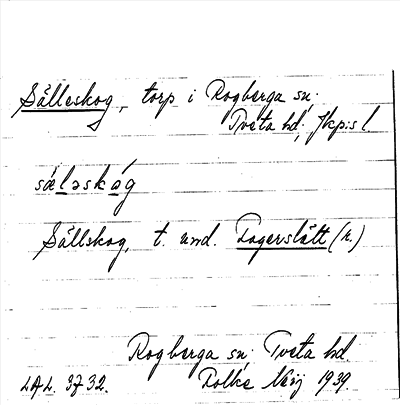 Sälleskog, torp i Rogberga sn;
Tveta hd, Jkp:s l.
sæ̀ləskóg
Sällskog, t. und. Fagerslätt (h.)
Rogberga sn; Tveta hd.
LAL. 3732. Folke Nyij 1939.